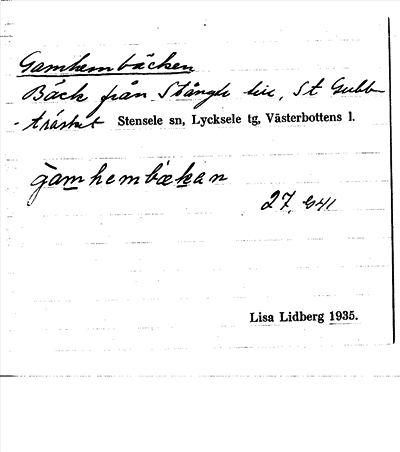 Gamhembäcken
Bäck från Stångli till, St Gubb-
-träsket Stensele sn, Lycksele tg, Västerbottens l.
gamhembäkan
27,
Lisa Lidberg 1935.